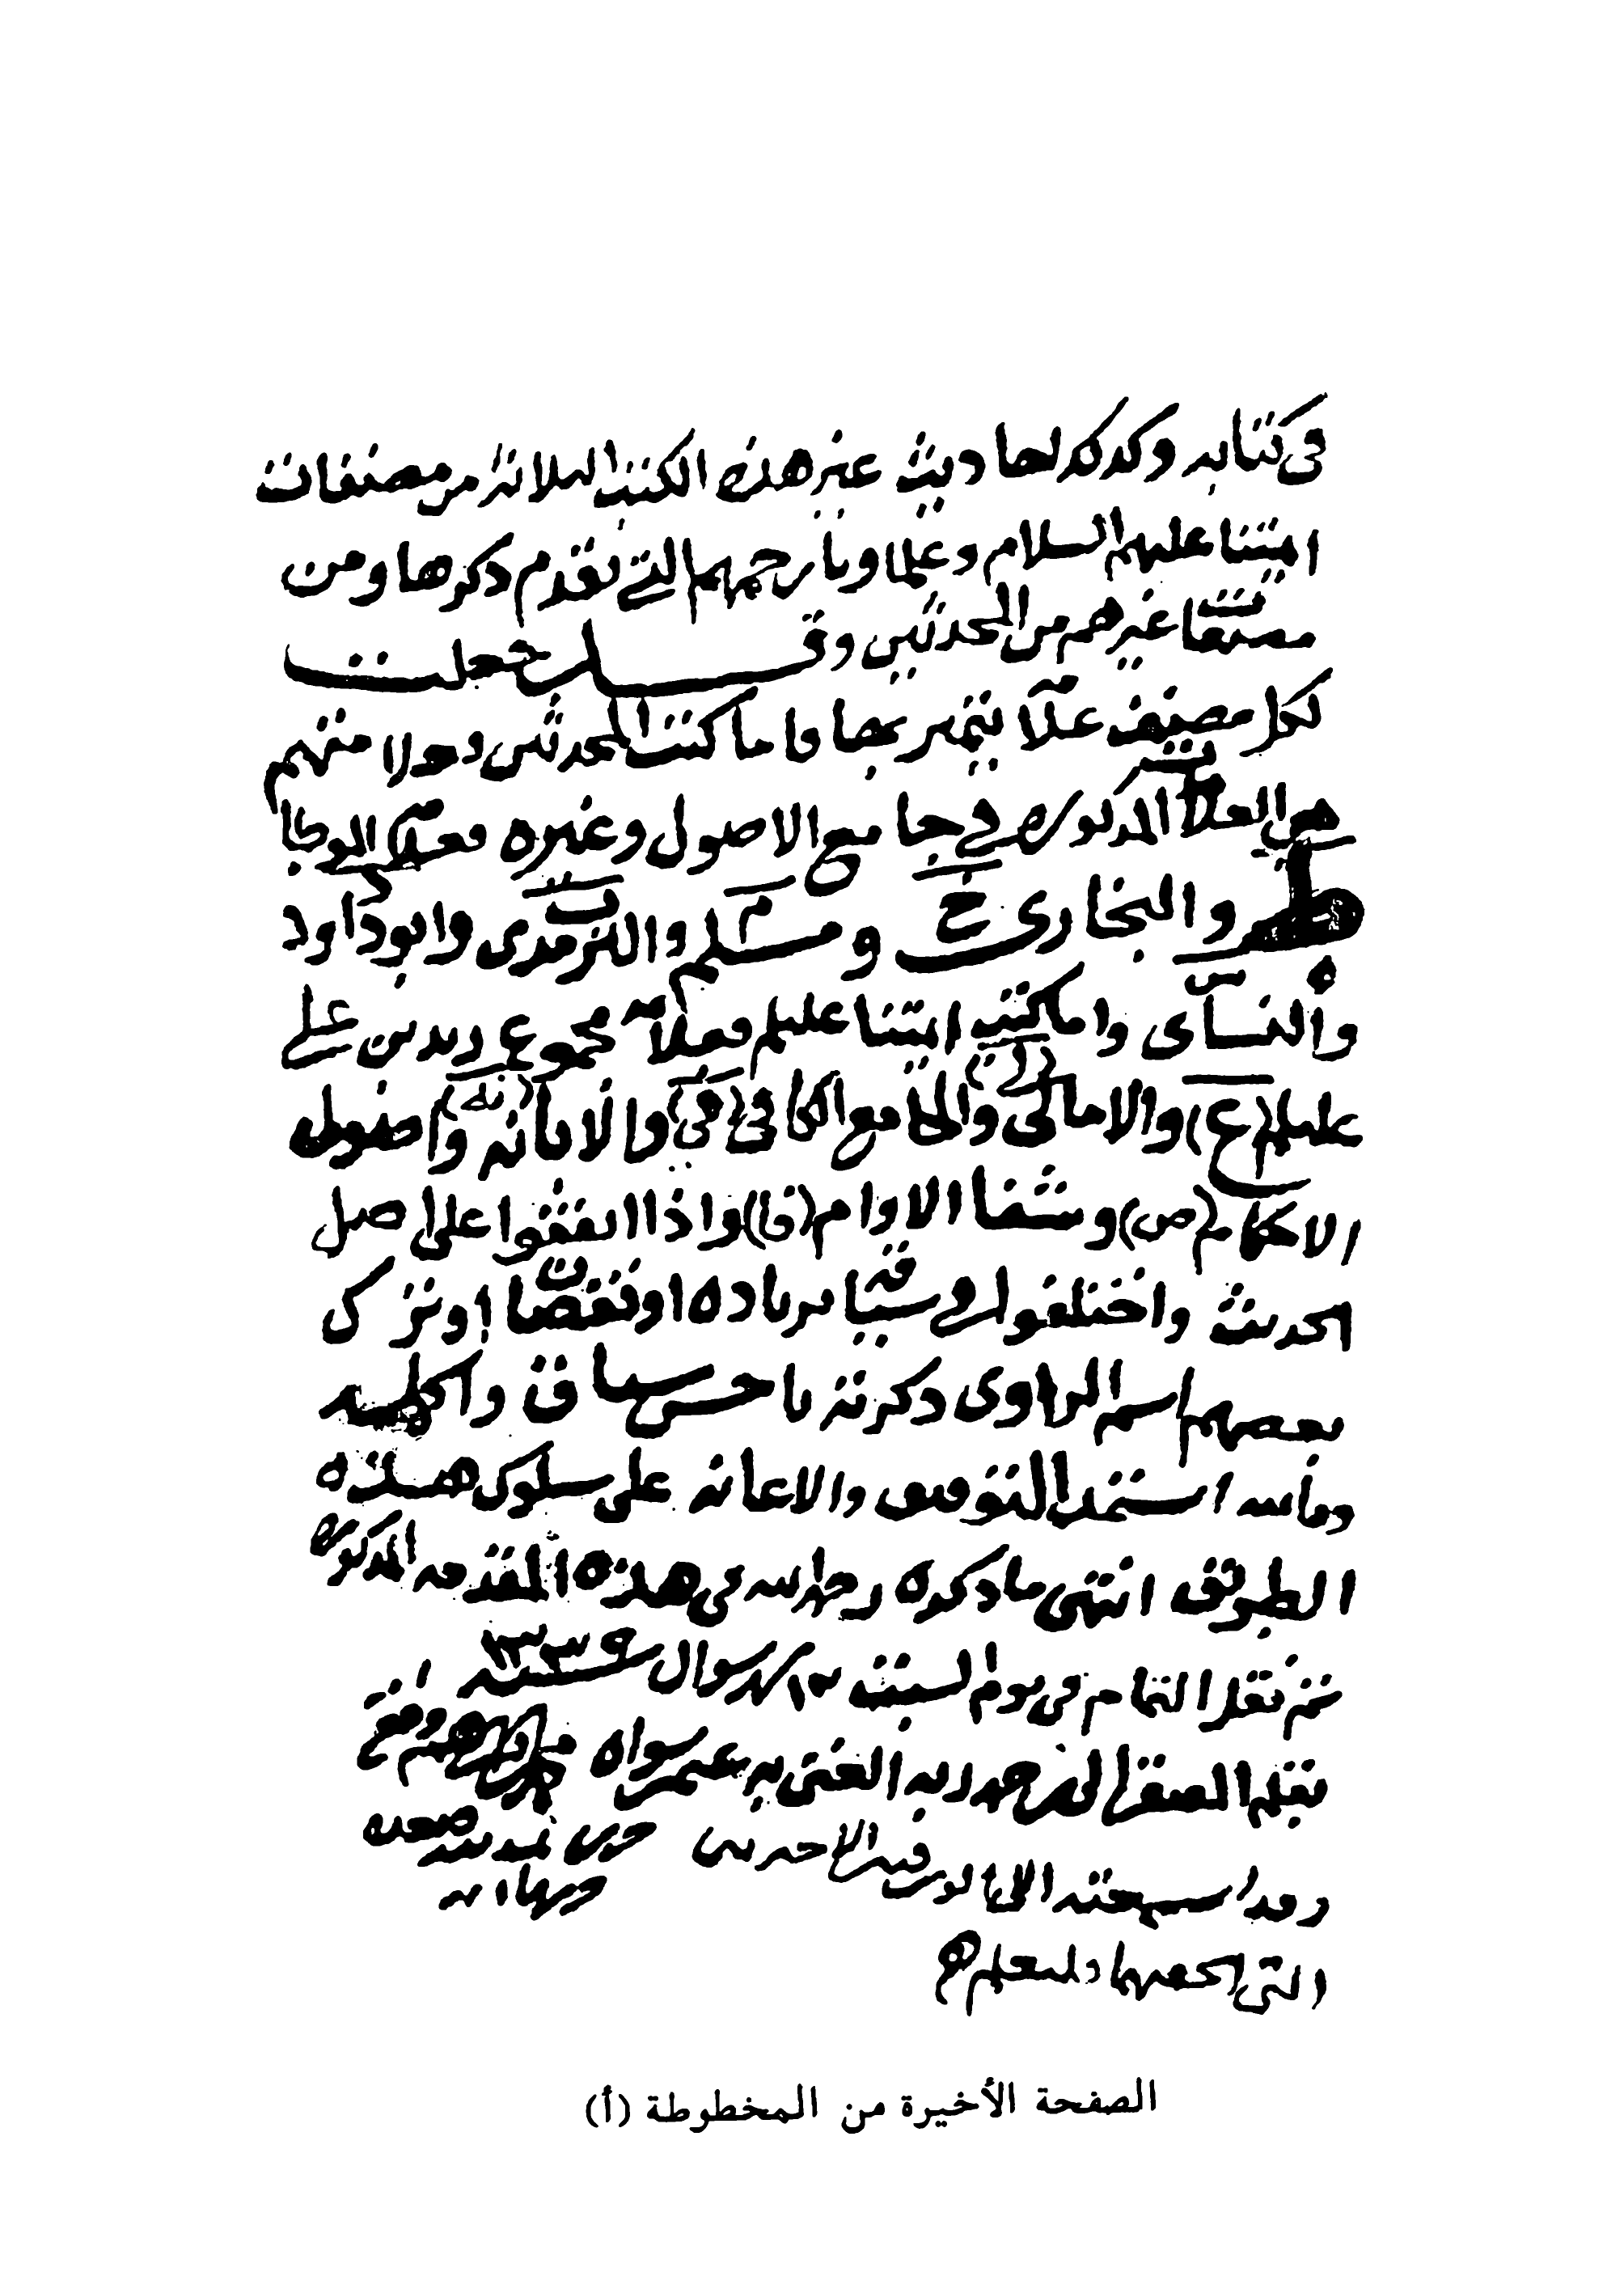 في كتابه وكذلك احاديث غير هذه الكتب الثلاثة من مصنفات
ايمتنا عليهم السلام وعلماونا رحمهم الله التي تقدم ذكرها ومن
مصنفات غيرهم من المحدثين وقد جعلت
لكل مصنف علامة يتميز بها فاما كتب المحدثين وهولا منهم
هي العلامة المذكوره في جامع الاصول وغيره فعلامة الموطا
ط والبخاري خ ومسلم م والترمذى ت وابوداود
د والنساى س واما كتب ايمتنا عليهم فعلامة مجموع زيد بن علي
عليهم (ع) والامالي (لي) والجامع الكافي (في) والابانه (نه) واصول
الاحكام (ص) وشفا الاوام (فا) واذا اتفقوا على اصل
الحديث واختلفوا في سياقته بزياده او نقصان او ترك
بعضهم اسم الراوى ذكرته باحسن سياق واكمله
ومن الله استمد التوفيق والاعانه على سلوك هذه
الطريق انتهى ما ذكره رحمه الله في هذه المقدمه المذكوره
تم نقل التمام في يوم السبت شهر شوال سنه ١٣٣٩
بقلم الفقير الى ربه الغني به عمن سواه
وقد
التى
الصفحة الأخيرة من المخطوطة (أ)